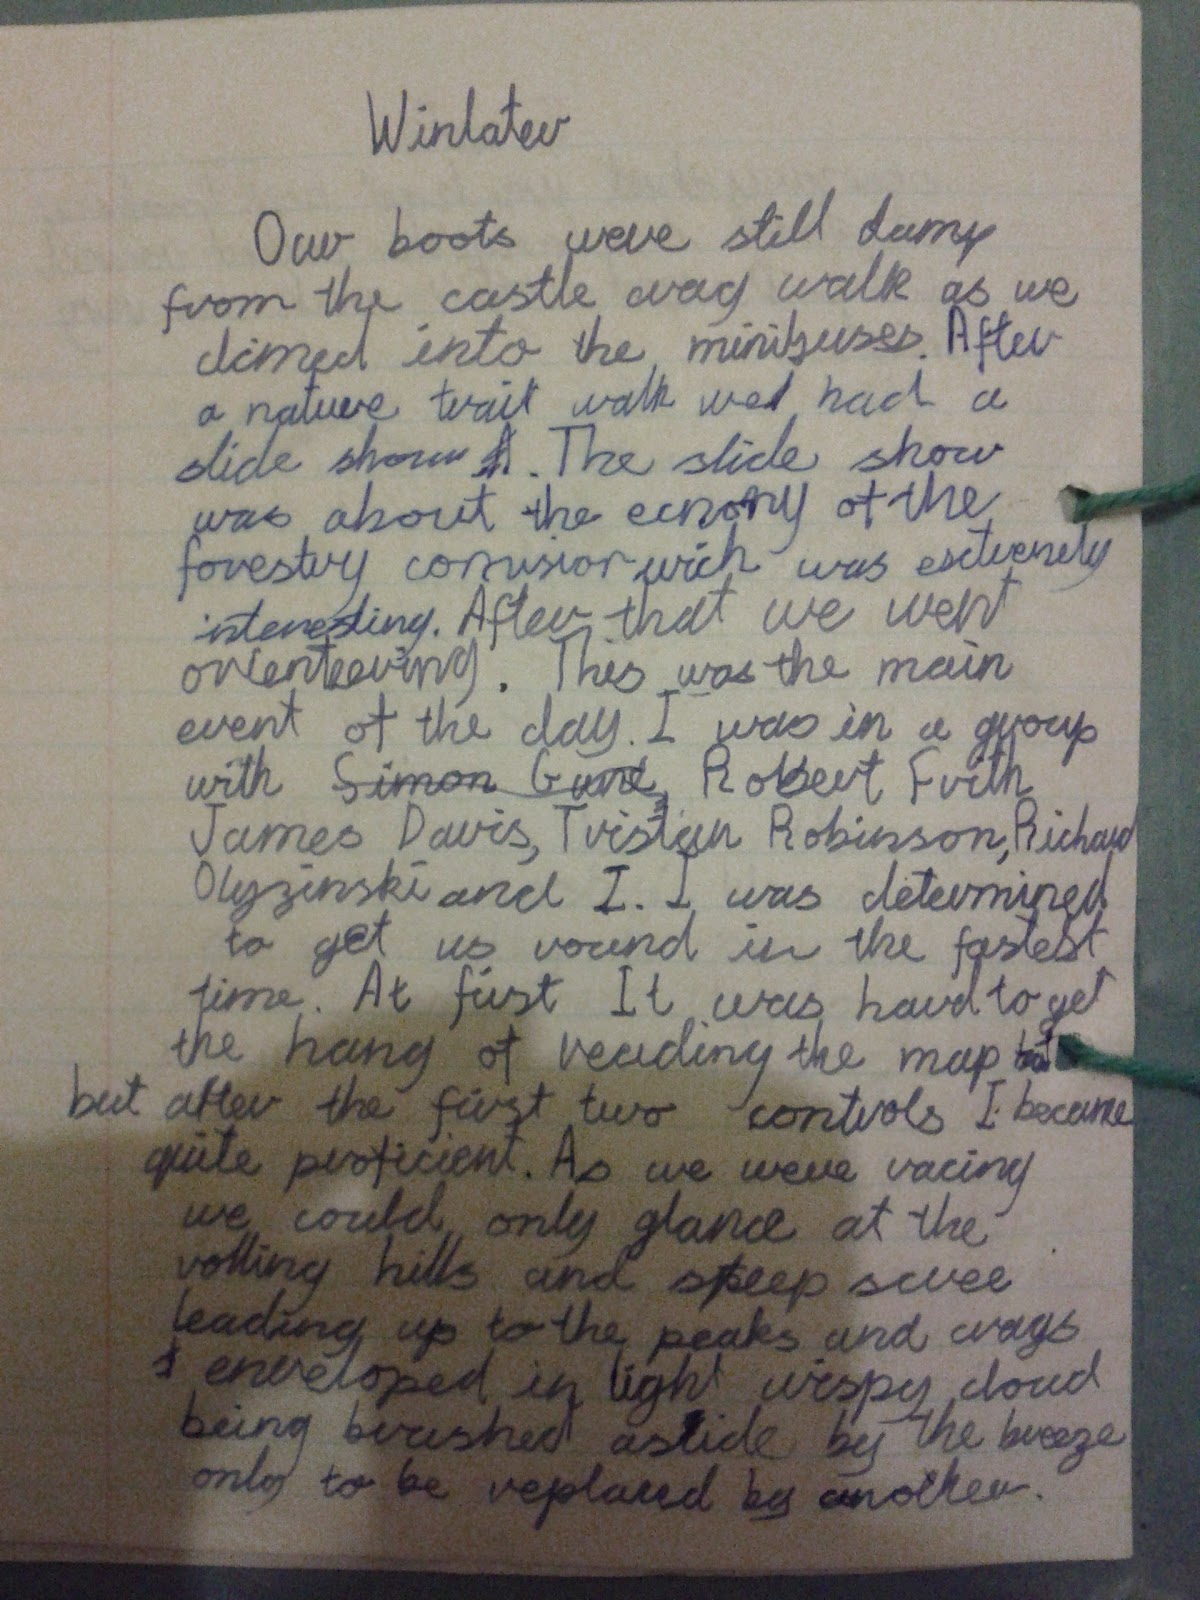 Winlater
Our boots were still damp
from the castle crag walk as we
climed into the minibuses. After
a nature trail walk we had a
slide show. The slide show
was about the ecnomy of the
forestry comision wich was exstremely
interesting. After that we went
orienteering. This was the main
event of the day. I was in a group
with Simon Robert Frith
James Davis, Tristian Robinson, Richard
Olyzinski and I. I was determined
to get us round in the fastest
time. At first It was hard to get
the hang of reading the map but
but after the first two controls I became
quite proficient. As we were racing
we could only glance at the
rolling hills and steep scree
leading up to the peaks and crags
enveloped in light wispy cloud
being brushed aside by the breeze
only to be replaced by another.